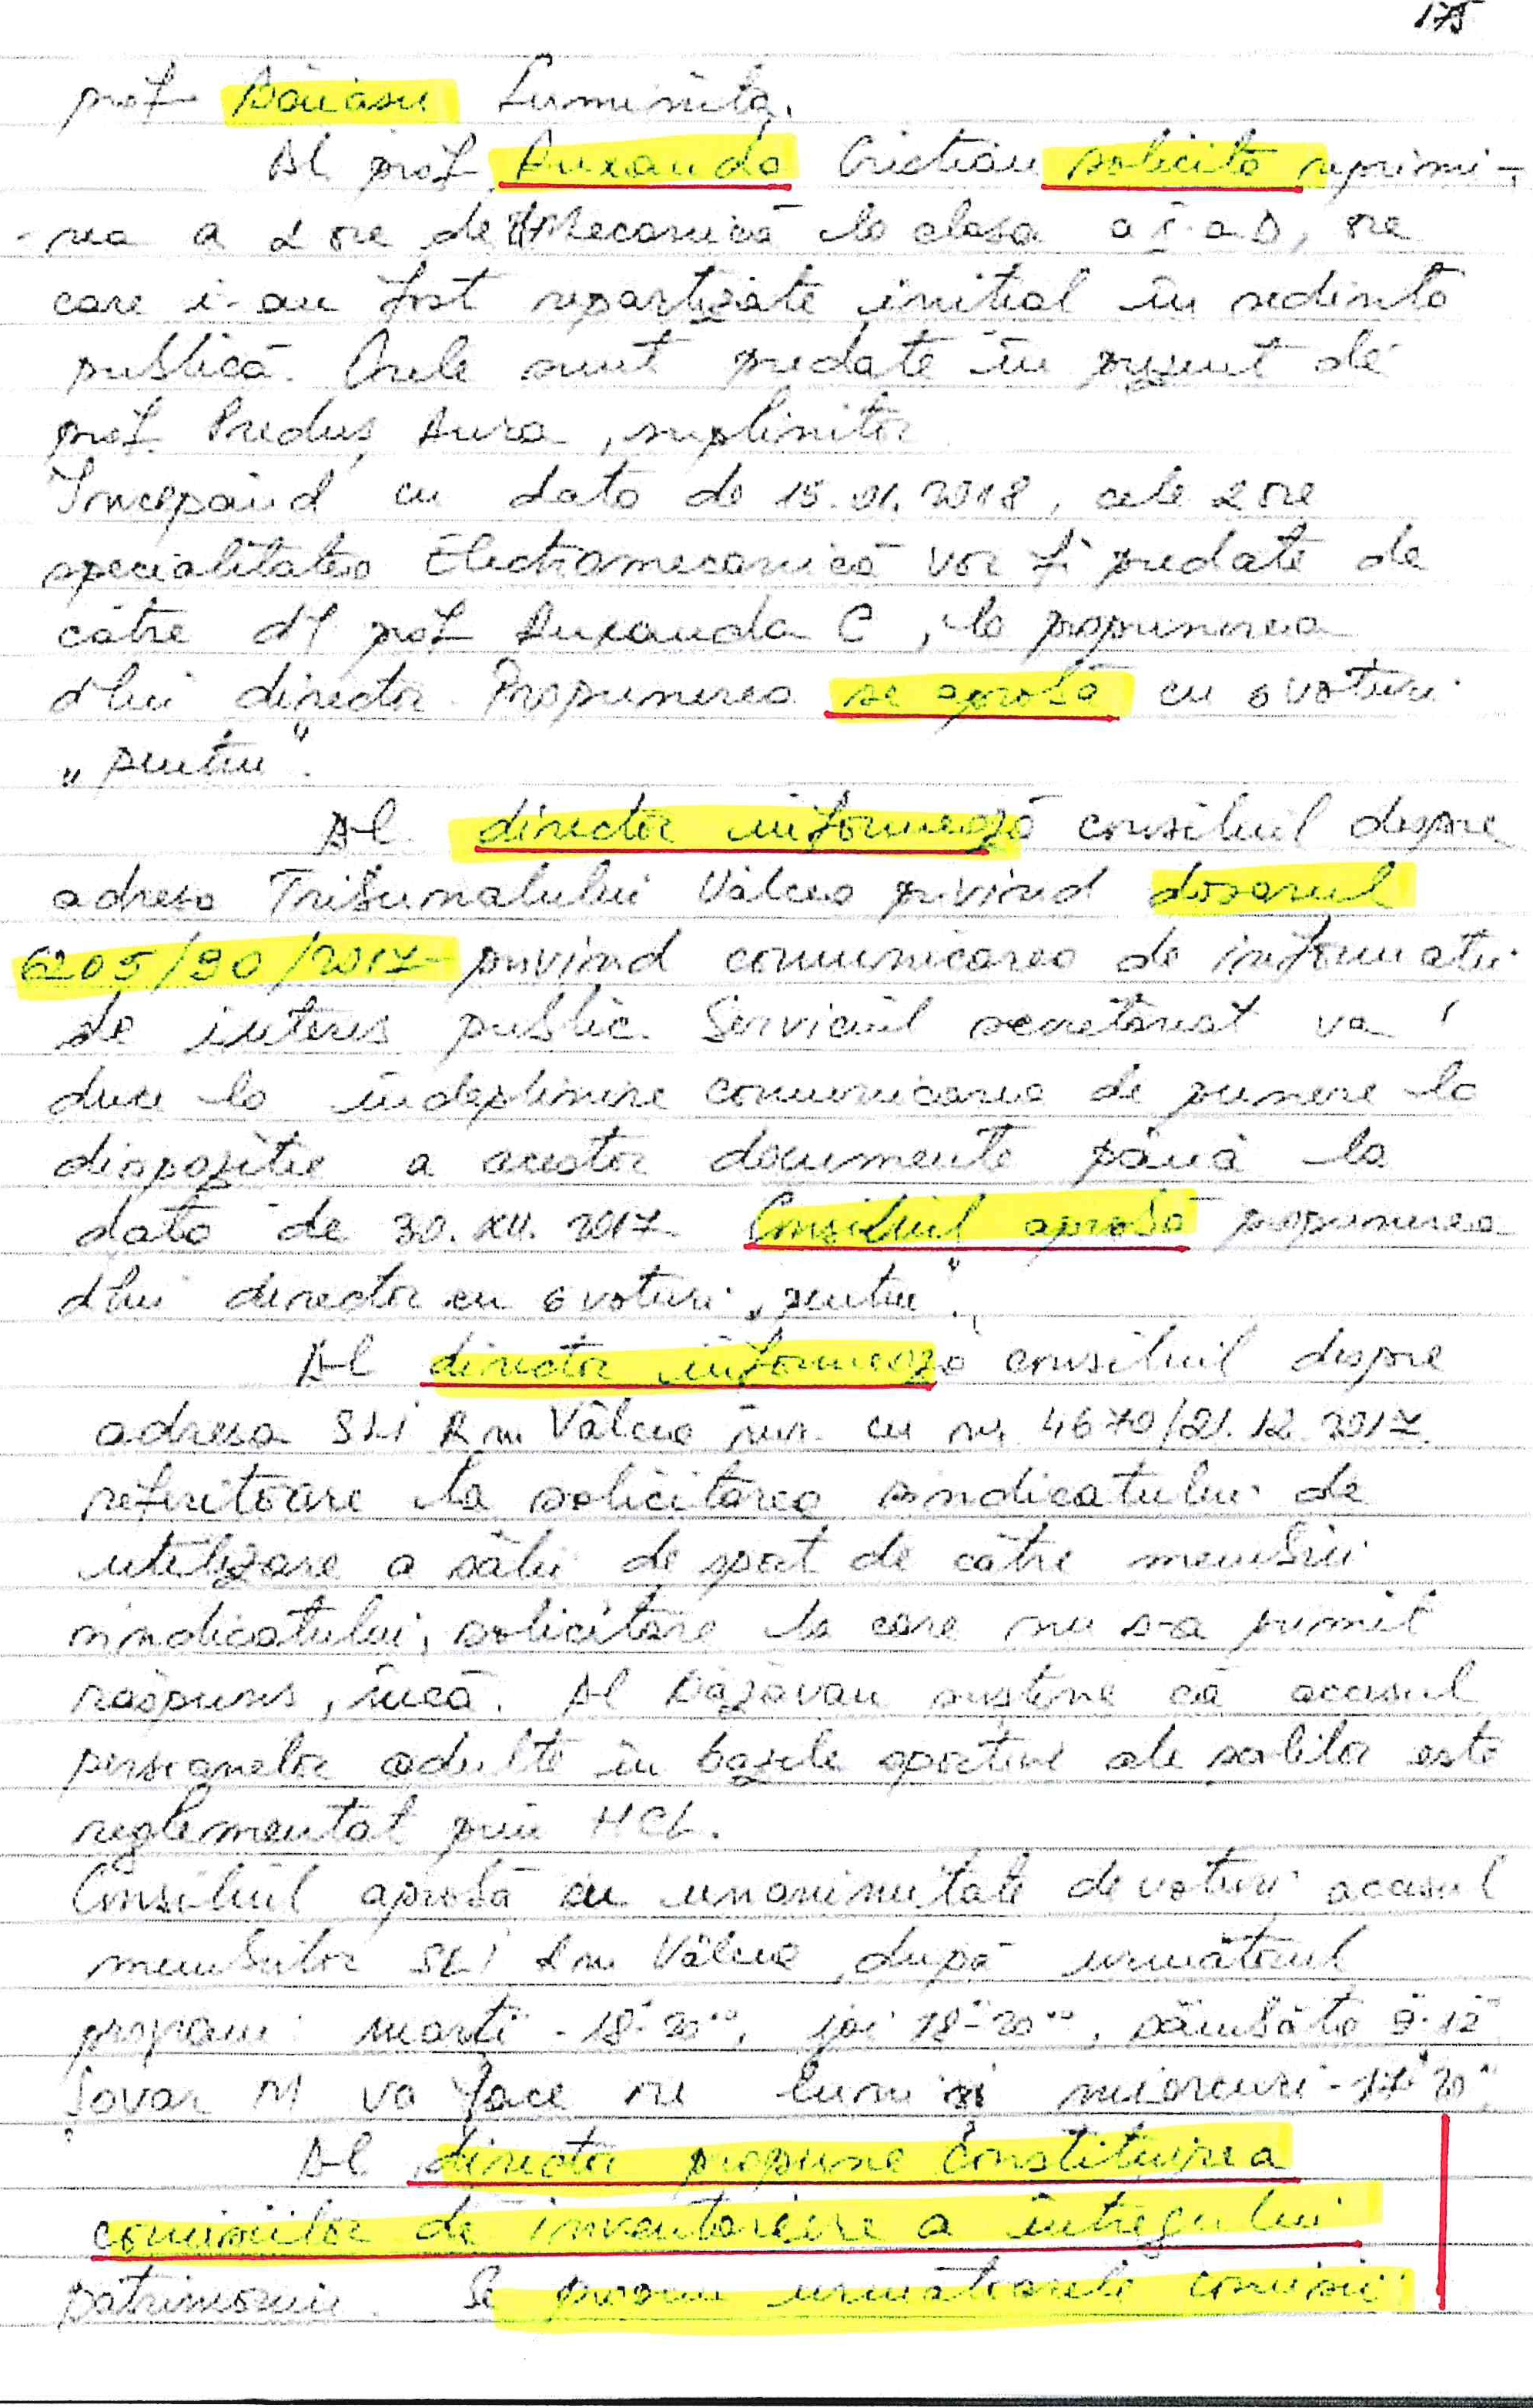 175
prof Băiașu Luminița.
Dl prof Durando Cristian solicită reprimi-
-rea a 2 ore de Mecanică la clasa a X-a D, ore
care i-au fost repartizate inițial în ședință
publică. Orele sunt predate în prezent de
prof. Preduș Aura, suplinitor
Începând cu data de 15.01.2018, cele 2 ore
specialitatea Electromecanică vor fi predate de
către dl prof C, la propunerea
dlui director. Propunerea se aprobă cu 6 voturi
„pentru".
Dl director informează consiliul despre
adresa Tribunalului Vâlcea privind dosarul
6205/90/2017 privind comunicarea de informații
de interes public. Serviciul secretariat va
duce la îndeplinire comunicarea de punere la
dispoziție a acestor documente până la
data de 30.XII.2017. Consiliul aprobă propunerea
dlui director cu 6 voturi „pentru".
Dl director informează consiliul despre
adresa SLI Rm Vâlcea înr. cu nr. 4670/21.12.2017
referitoare la solicitarea sindicatului de
utilizare a sălii de sport de către membrii
sindicatului, solicitare la care nu s-a primit
răspuns, încă. Dl susține că accesul
persoanelor adulte în bazele sportive ale școlilor este
reglementat prin HCL.
Consiliul aprobă cu unanimitate de voturi accesul
membrilor SLI Rm Vâlcea după următorul
program: marți - 18-20⁰⁰, joi 18-20⁰⁰, sâmbăta 9-12
M va face ore luni și miercuri - 17-20⁰⁰
Dl director propune constituirea
comisiilor de inventariere a întregului
patrimoniu. Se propun următoarele comisii: